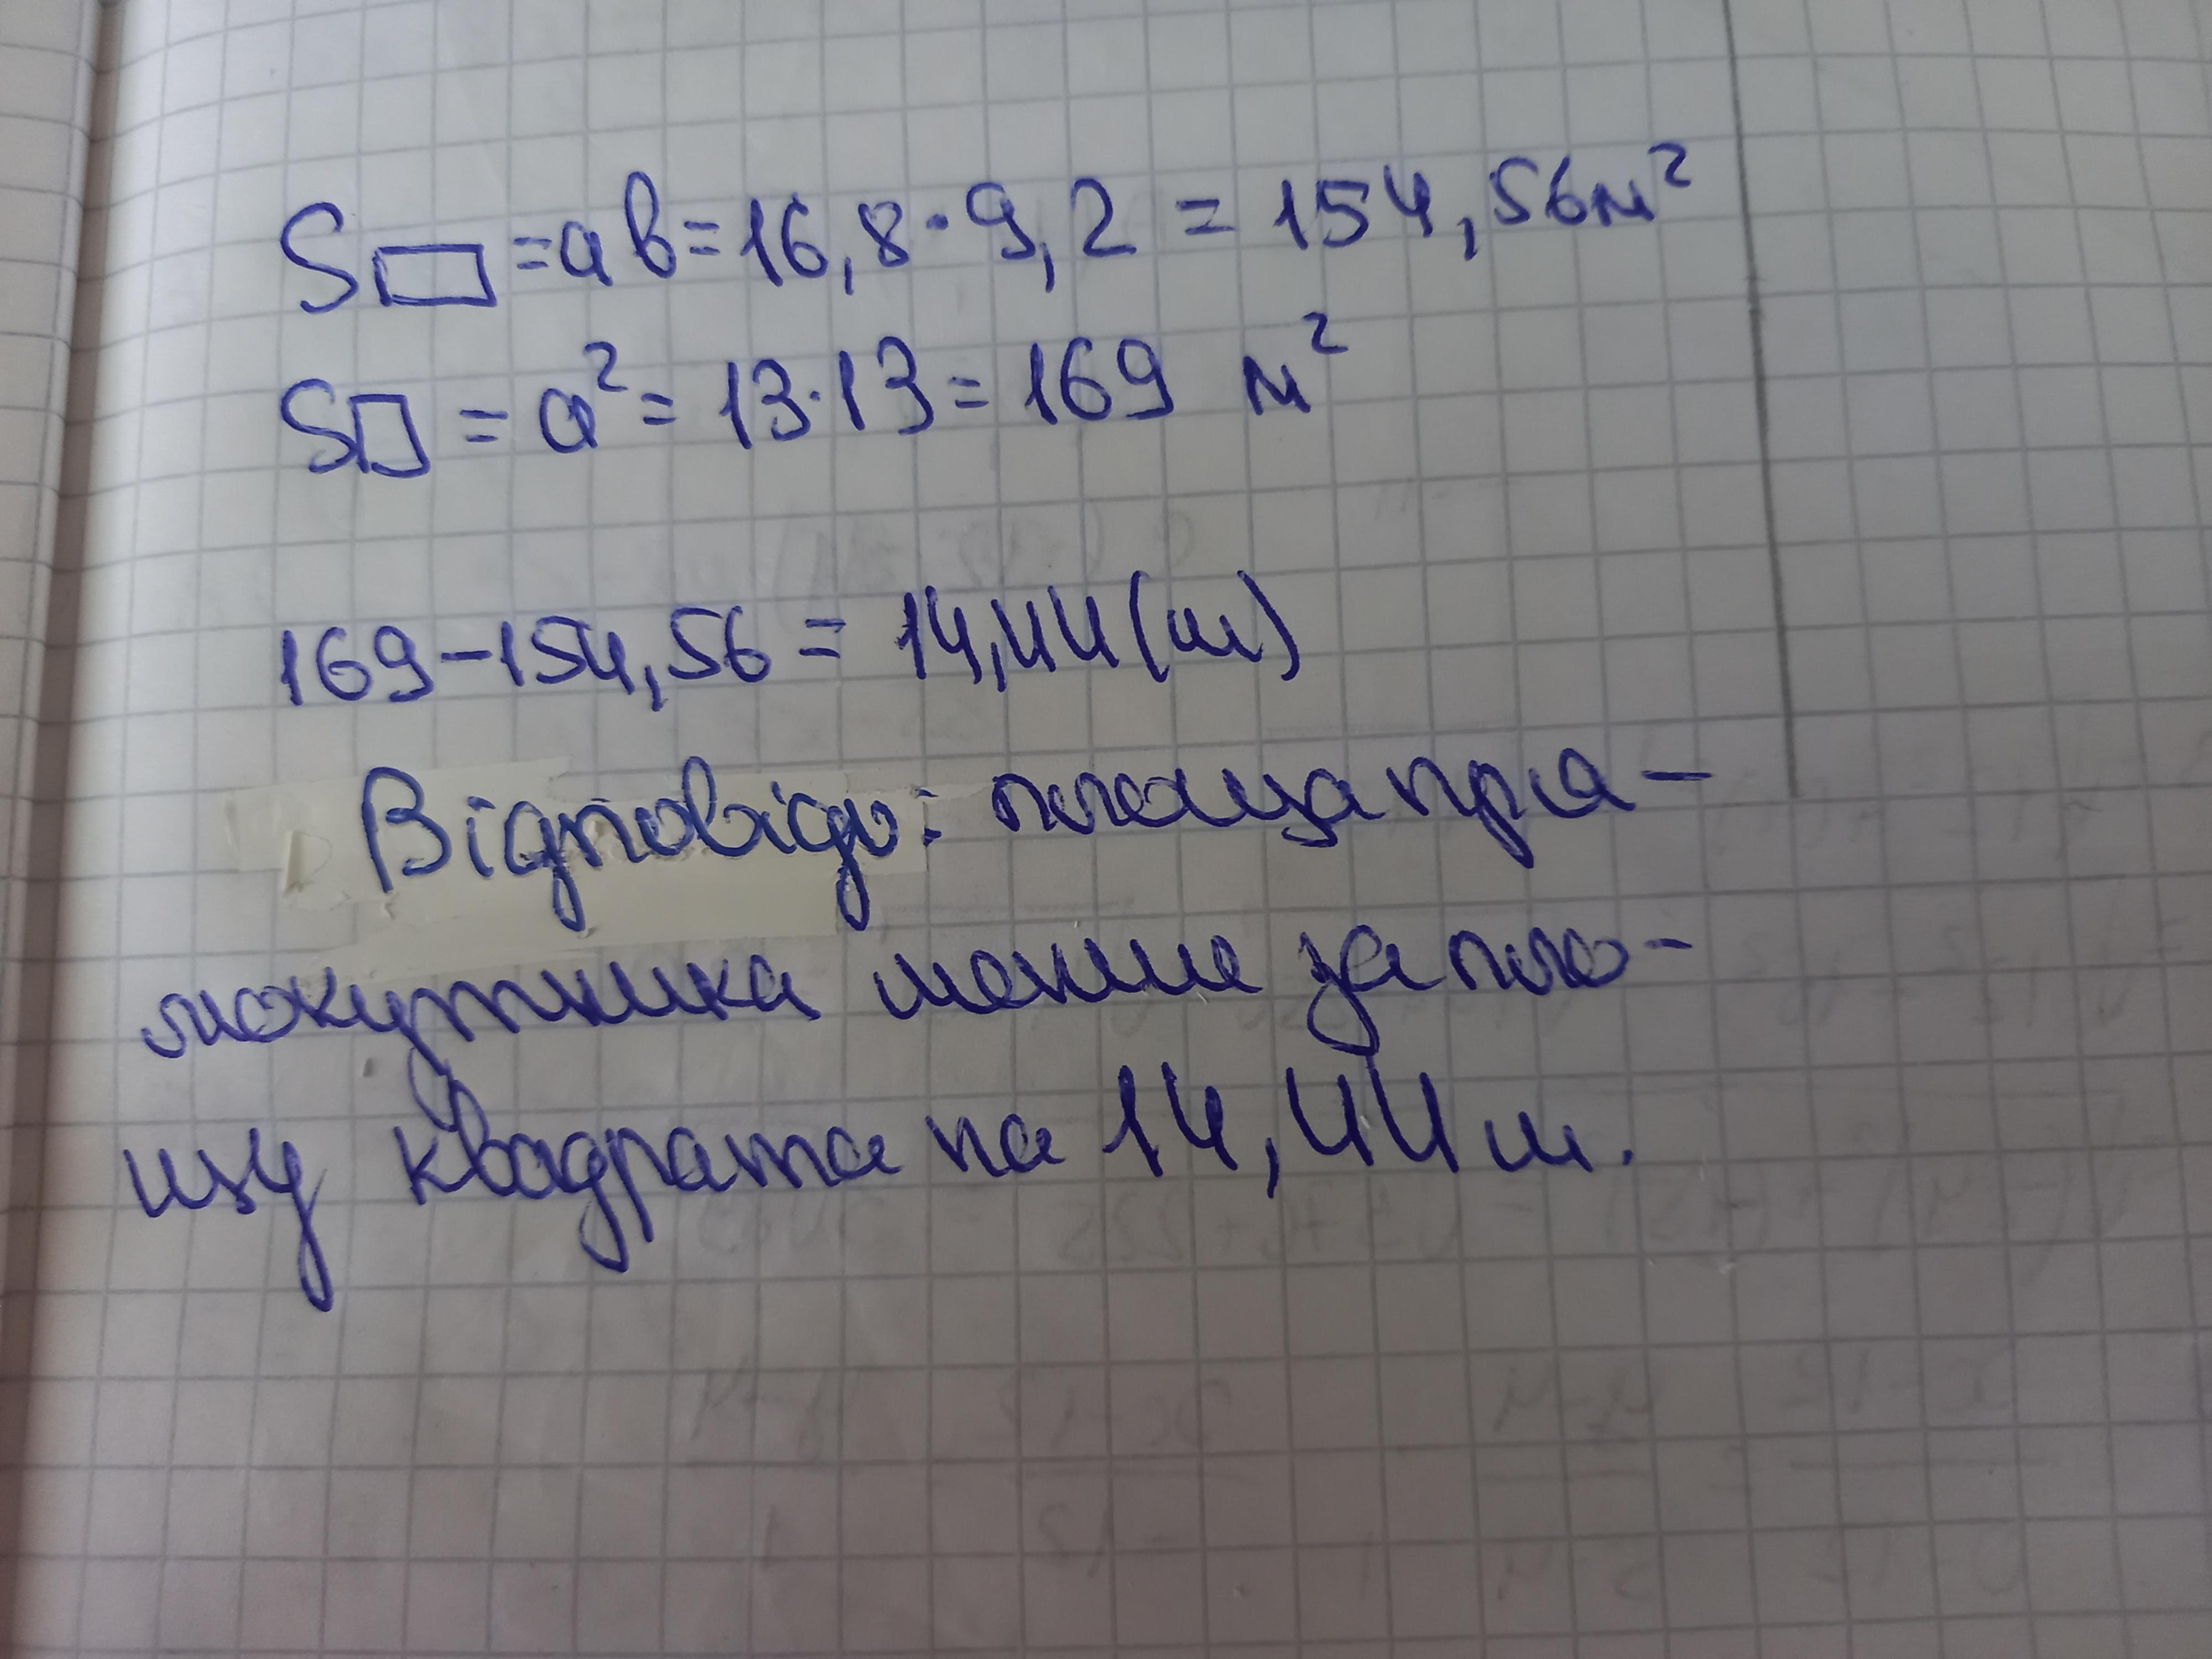 S▭ = ab = 16,8 · 9,2 = 154,56 м²
S□ = a² = 13 · 13 = 169 м²
169 – 154,56 = 14,44 (м)
Відповідь: площа пря-
мокутника менше за пло-
щу квадрата на 14,44 м.